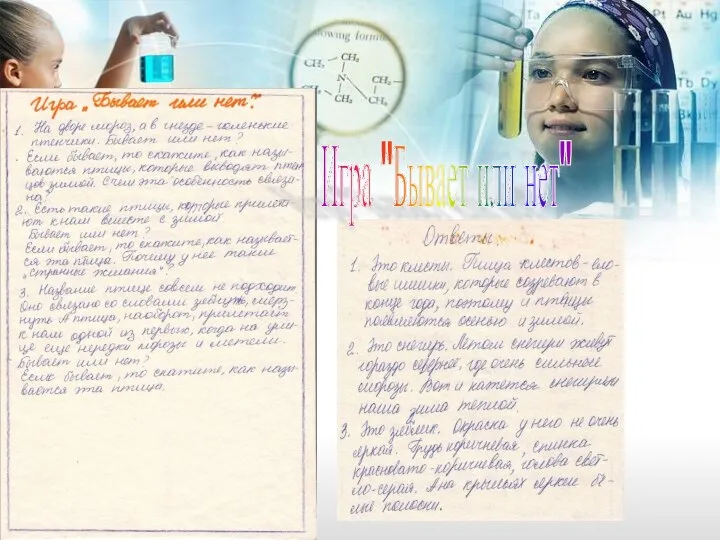 owing form
CH₃
CH₃
N
CH₃
CH₃
Ta
Pt Au Hg
Tb Dy
Bk
Игра "Бывает или нет"
Игра „Бывает или нет?"
1. На дворе мороз, а в гнезде - голенькие
птенчики. Бывает или нет?
Если бывает, то скажите, как назы-
ваются птицы, которые выводят птен
цов зимой. С чем эта особенность связа-
на?
2. Есть такие птицы, которые прилета-
ют к нам вместе с зимой
Бывает или нет?
Если бывает, то скажите, как называет-
ся эта птица. Почему у нее такие
„странные желания"?
3. Название птице совсем не подходит.
Оно связано со словами зябнуть, мерз-
нуть А птица, наоборот, прилетает
к нам одной из первых, когда на ули-
це еще нередки морозы и метели.
Бывает или нет?
Если бывает, то скажите, как назы-
вается эта птица.
Ответы
1. Это клесты. Пища клестов - ело-
вые шишки, которые созревают в
конце года, поэтому и птенцы
появляются осенью и зимой.
2. Это снегирь. Летом снегири живут
гораздо севернее, где очень сильные
морозы. Вот и кажется снегирям
наша зима теплой.
3. Это зяблик. Окраска у него не очень
яркая. Грудь коричневая, спинка
красновато-коричневая, голова свет-
ло-серая. А на крыльях яркие бе-
лые полоски.